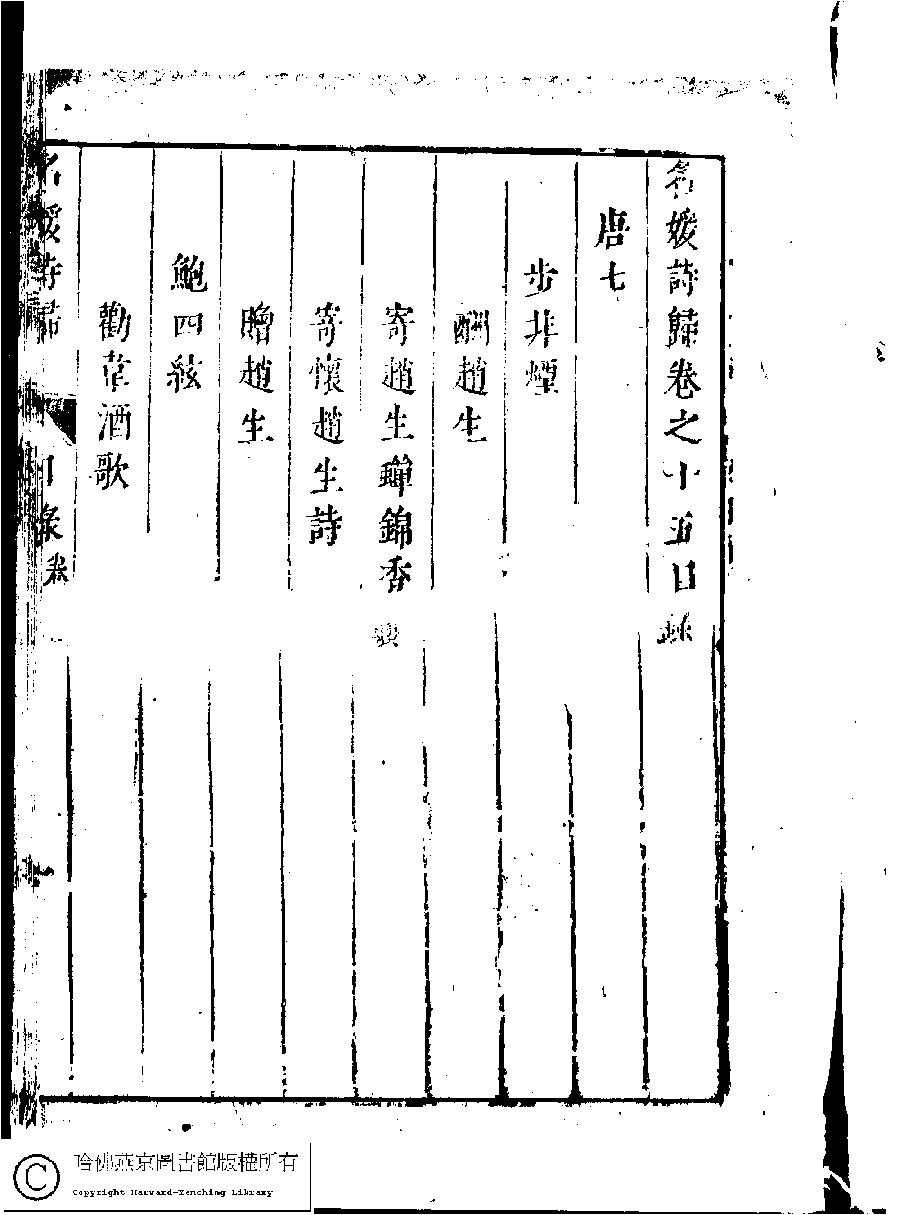 名媛詩歸卷之十五目錄
唐七
步非煙
酬趙生
寄趙生蟬錦香囊
寄懷趙生詩
贈趙生
鮑四絃
勸韋酒歌
名媛詩歸
目錄卷
哈佛燕京圖書館版權所有
Copyright Harvard-Yenching Library